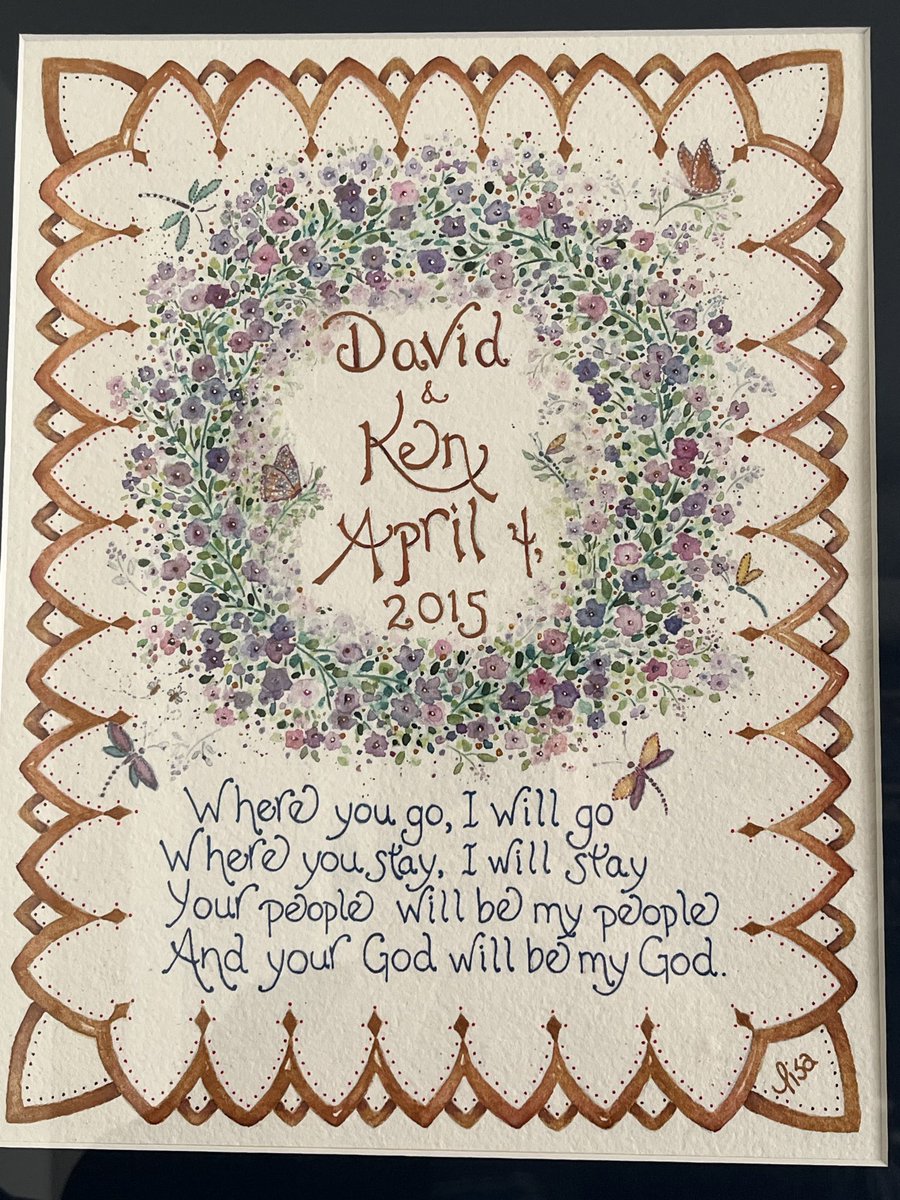 David
&
Ken
April 4,
2015
Where you go, I will go
Where you stay, I will stay
Your people will be my people
And your God will be my God.
lisa